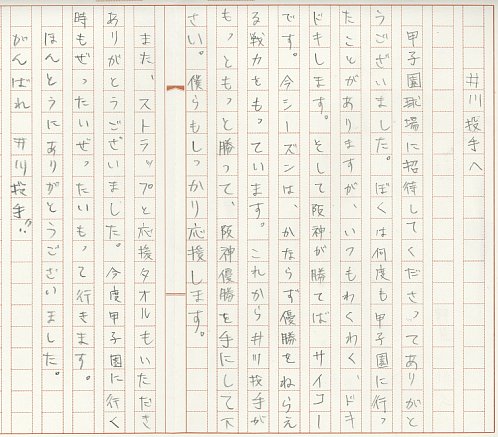 井川投手へ
甲子園球場に招待してくださってありがと
うございました。ぼくは何度も甲子園に行っ
たことがありますが、いつもわくわく、ドキ
ドキします。そして阪神が勝てばサイコー
です。今シーズンは、かならず優勝をねらえ
る戦力をもっています。これから井川投手が
もっともっと勝って、阪神優勝を手にして下
さい。僕らもしっかり応援します。
また、ストラップと応援タオルもいただき
ありがとうございました。今度甲子園に行く
時もぜったいぜったいもって行きます。
ほんとうにありがとうございました。
がんばれ井川投手!!